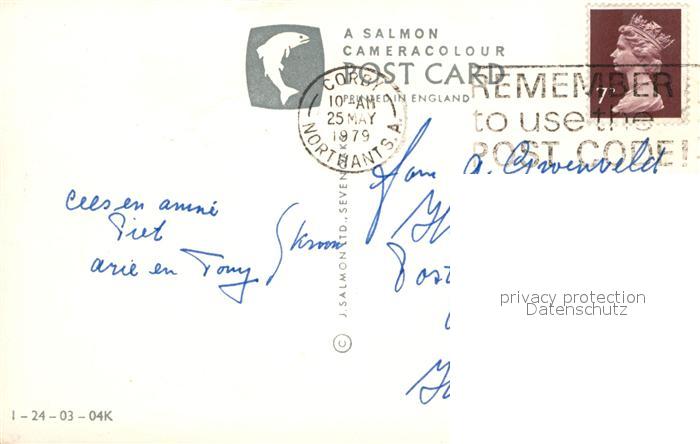 A SALMON
CAMERACOLOUR
POST CARD
PRINTED IN ENGLAND
CORBY
10-AM
25 MAY
1979
NORTHANTS.
REMEMBER
to use the
POST CODE!
7P
Cees en
Piet
Arie en Tony
© J. SALMON LTD., SEVEN
privacy protection
Datenschutz
1 – 24 – 03 – 04K